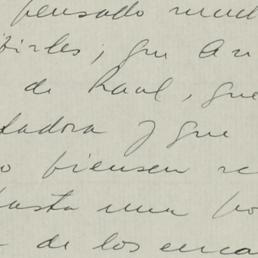 pensado much
birles; que An
de Raul, que
tadora y que
o piensen re
hasta una po
de los enca